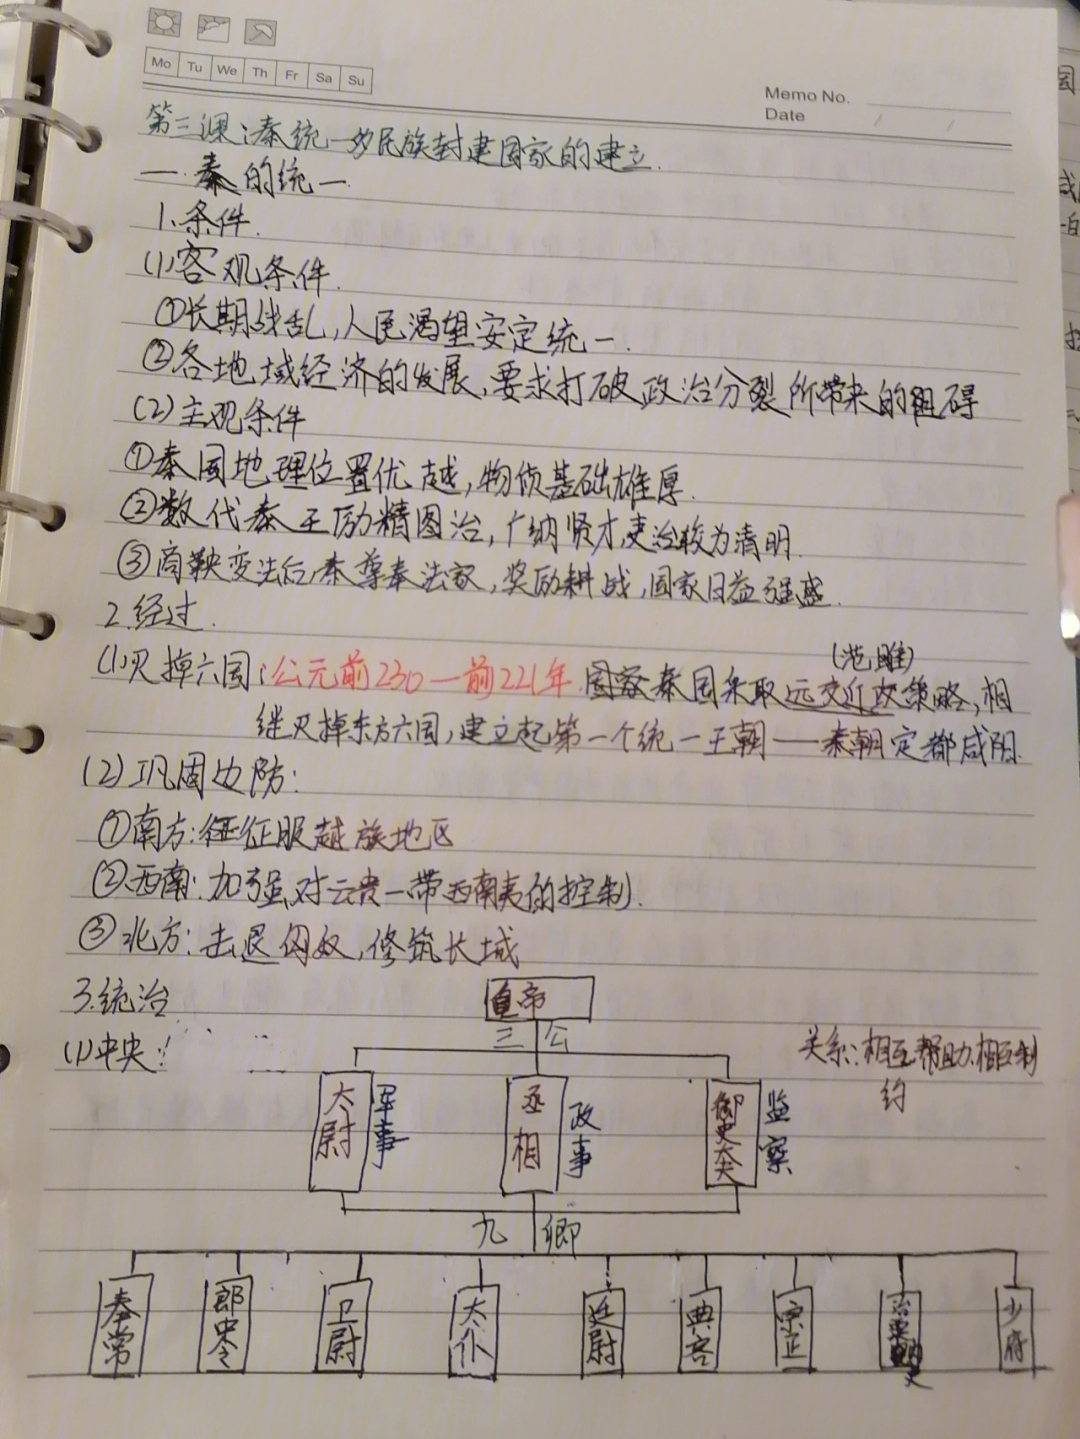 Mo Tu We Th Fr Sa Su
Memo No.
Date
第三课:秦统一多民族封建国家的建立.
一.秦的统一
1.条件.
(1)客观条件.
①长期战乱,人民渴望安定统一.
②各地域经济的发展,要求打破政治分裂所带来的阻碍
(2)主观条件
①秦国地理位置优越,物质基础雄厚.
②数代秦王励精图治,广纳贤才,吏治较为清明.
③商鞅变法后,秦尊奉法家,奖励耕战,国家日益强盛.
2.经过.
(范雎)
(1)灭掉六国:公元前230—前221年.秦国采取远交近攻策略,相
继灭掉东方六国,建立起第一个统一王朝——秦朝定都咸阳.
(2)巩固边防:
①南方:征服越族地区
②西南:加强对云贵一带西南夷的控制.
③北方:击退匈奴,修筑长城
3.统治
皇帝
(1)中央:
三公
关系:相互帮助,相互制
约
太尉 军事 丞相 政事 御史大夫 监察
九卿
奉常 郎中令 卫尉 太仆 廷尉 典客 宗正 少府